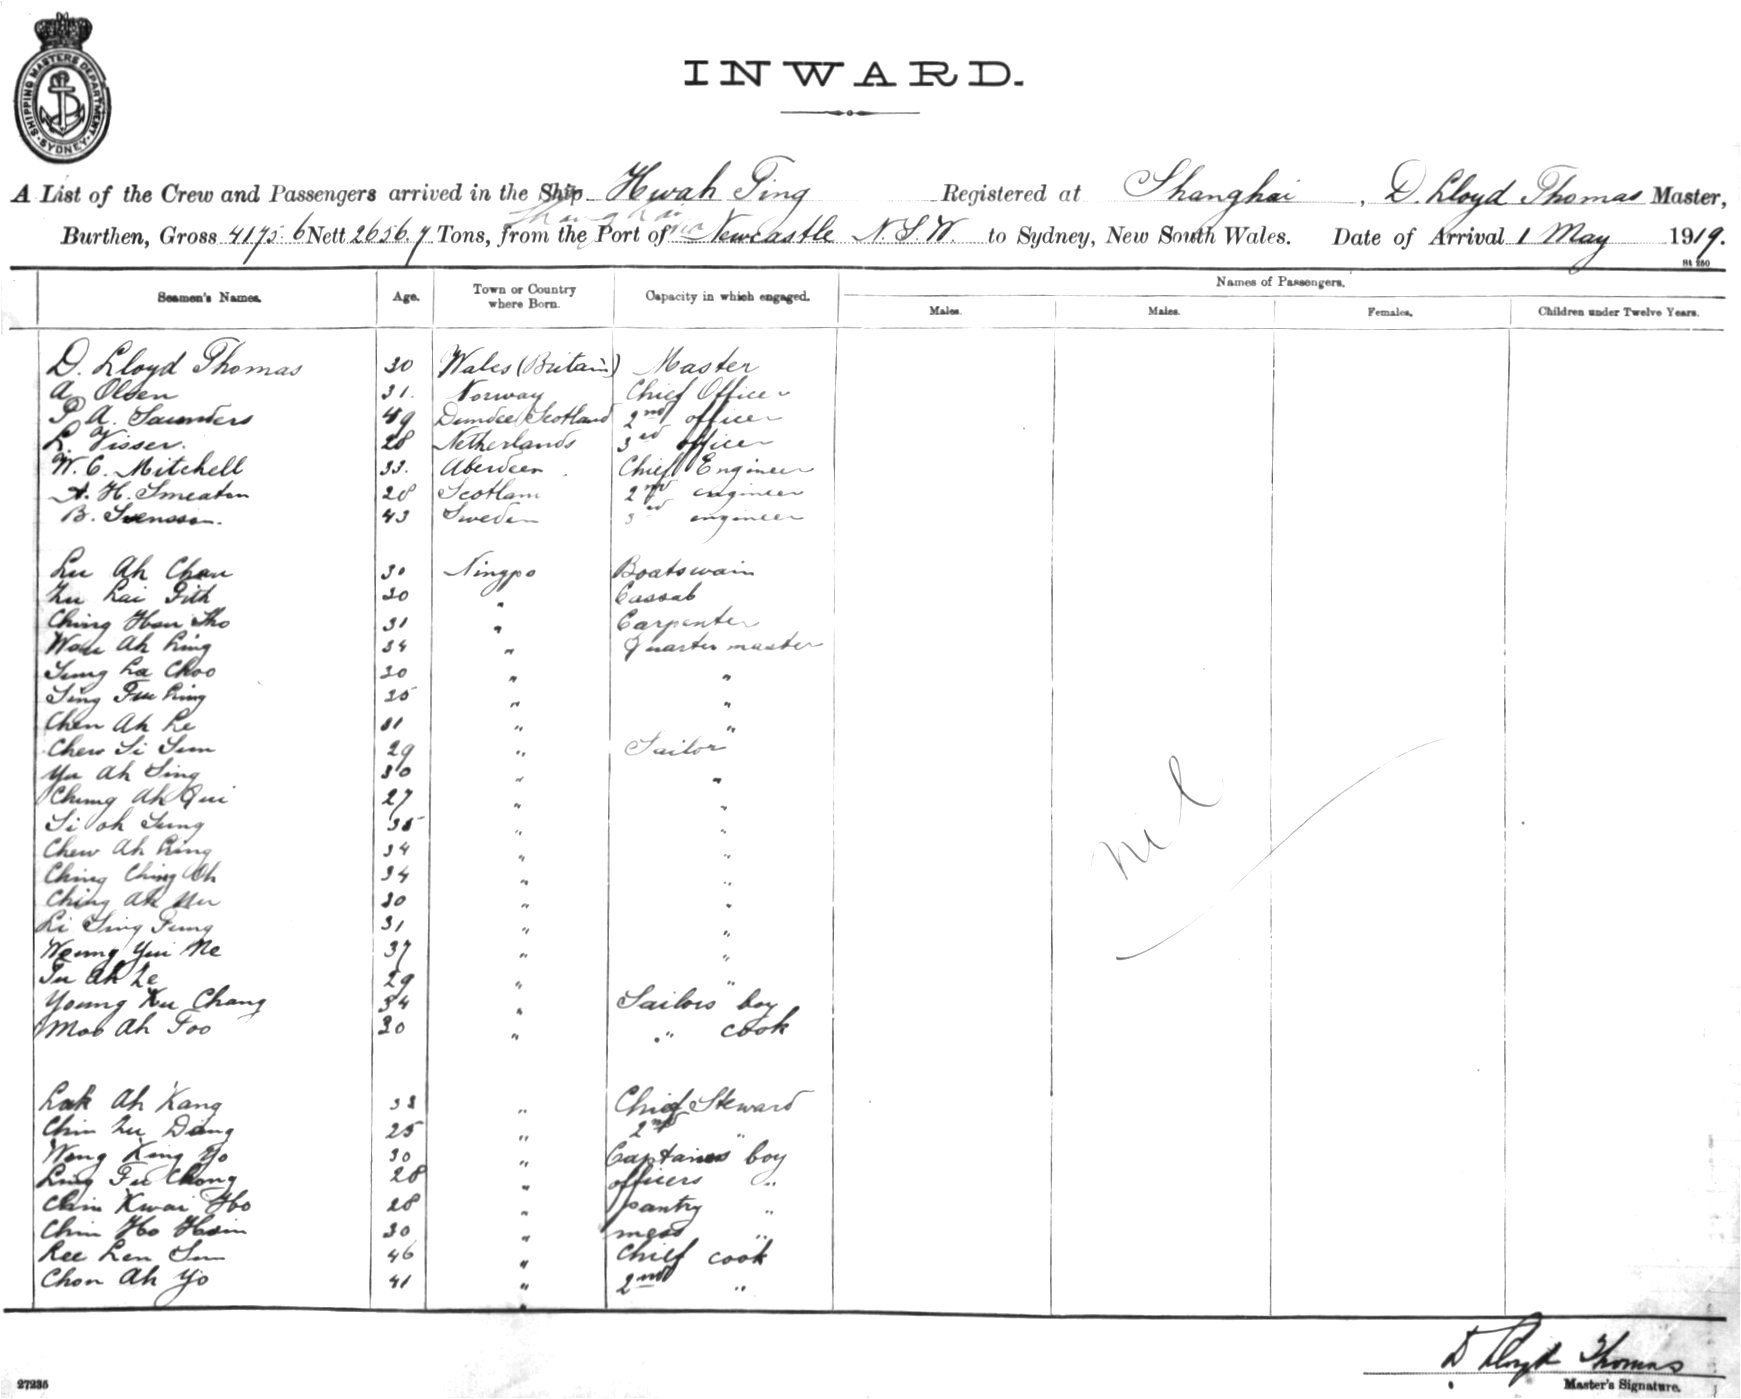 SHIPPING MASTERS DEPARTMENT
SYDNEY
INWARD.
A List of the Crew and Passengers arrived in the Ship Hwah Ping Registered at Shanghai, D. Lloyd Thomas Master,
Shanghai via
Burthen, Gross 4175.6 Nett 2656.7 Tons, from the Port of Newcastle N.S.W. to Sydney, New South Wales. Date of Arrival 1 May 1919.
St 260
Seamen's Names. Age. Town or Country where Born. Capacity in which engaged. Names of Passengers.
Males. Males. Females. Children under Twelve Years.
D. Lloyd Thomas 30 Wales (Britain) Master
A. Olsen 31. Norway Chief Officer
P. A. Saunders 49 Dundee Scotland 2nd officer
L. Visser. 28 Netherlands 3rd officer
W. C. Mitchell 33. Aberdeen Chief Engineer
A. H. Smeaton 28 Scotland 2nd engineer
B. Svensson. 43 Sweden 3rd engineer
Lu Ah Chau 30 Ningpo Boatswain
Zu Lai 30 " Cassab
Ching Hsu 31 " Carpenter
Wau Ah Ling 34 " Quarter master
Sung La Choo 30 " "
Sing Fuu Ling 25 " "
Chen Ah Le 31 " "
Chew Si Sum 29 " Sailor
Yu Ah Sing 30 " "
Chung Ah Qui 27 " "
Si oh Sung 35 " "
Chew Ah Ling 34 " "
Ching Ching Oh 34 " "
Ching Ah Mu 30 " "
Li Sing Fung 31 " "
Woung Yui Me 37 " "
Fu Ah Ze 29 " "
Young Ku Chang 34 " Sailors boy
Moo Ah Foo 30 " " cook
nil
Lak Ah Kang 33 " Chief Steward
Chin Zu Dang 25 " 2nd "
Wong King Yo 30 " Captains boy
Ling Fu Chong 28 " officers "
Chin Kwai Ho 28 " pantry "
Chin Ho Hsin 30 " mess "
Lee Len Sun 46 " Chief cook
Chon Ah Yo 41 " 2nd "
D Lloyd Thomas
Master's Signature.
27235